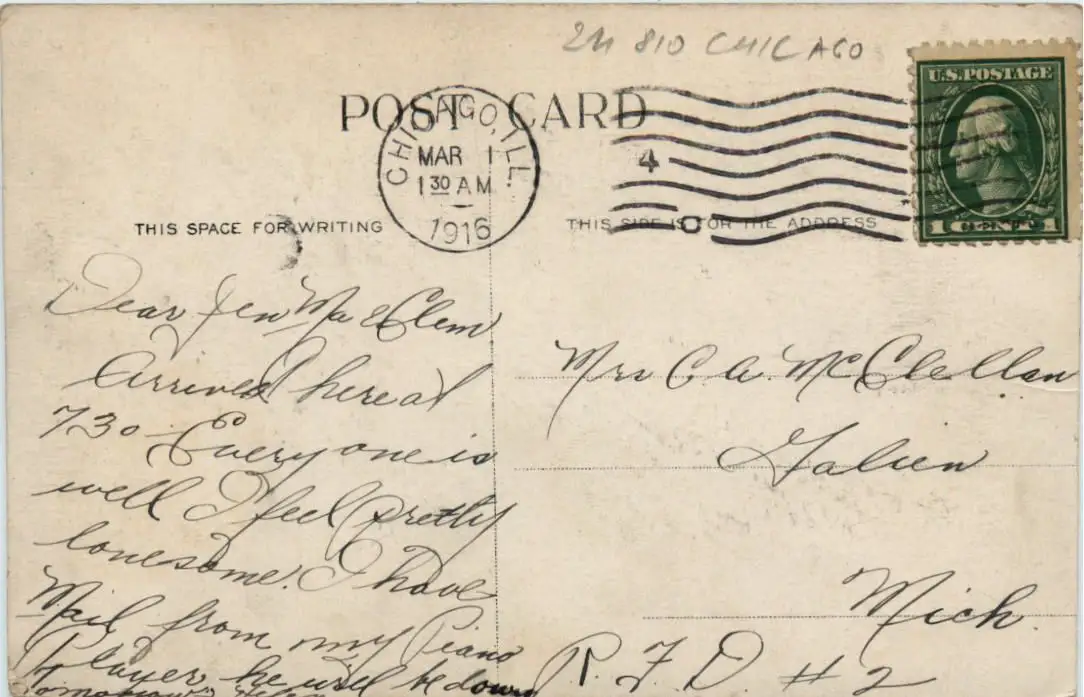 2M 810 CHICAGO
U.S. POSTAGE
POST CARD
CHICAGO, ILL.
MAR 1
1 30 AM
1916
4
THIS SPACE FOR WRITING
THIS SIDE IS FOR THE ADDRESS
1 CENT 1
Dear Jen Ma & Clem
Arrived here at
730 Everyone is
well I feel pretty
lonesome. I have
Mail from my Piano
Player he will be down
Tomorrow
Mrs C. A. McClellan
Galien
Mich.
R. F. D. #2